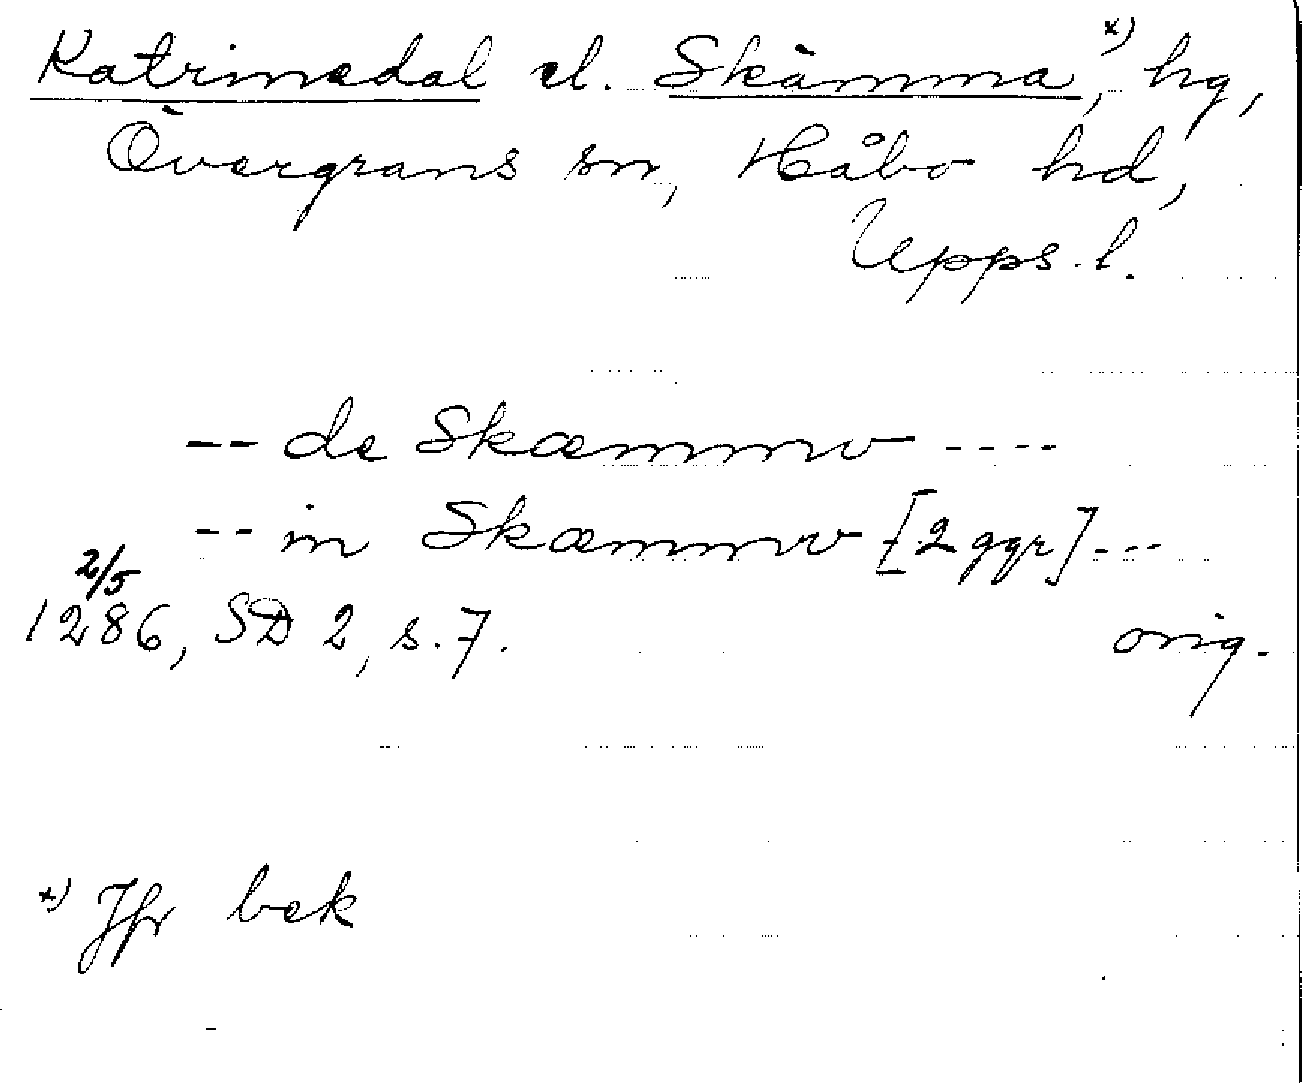 Katrinedal el. Skämma,ˣ⁾ hg,
Övergrans sn, Håbo hd,
Upps. l.
-- de Skæmmv ----
-- in Skæmmv [2 ggr] ---
2/5
1286, SD 2, s. 7. orig.
ˣ⁾ Jfr bek